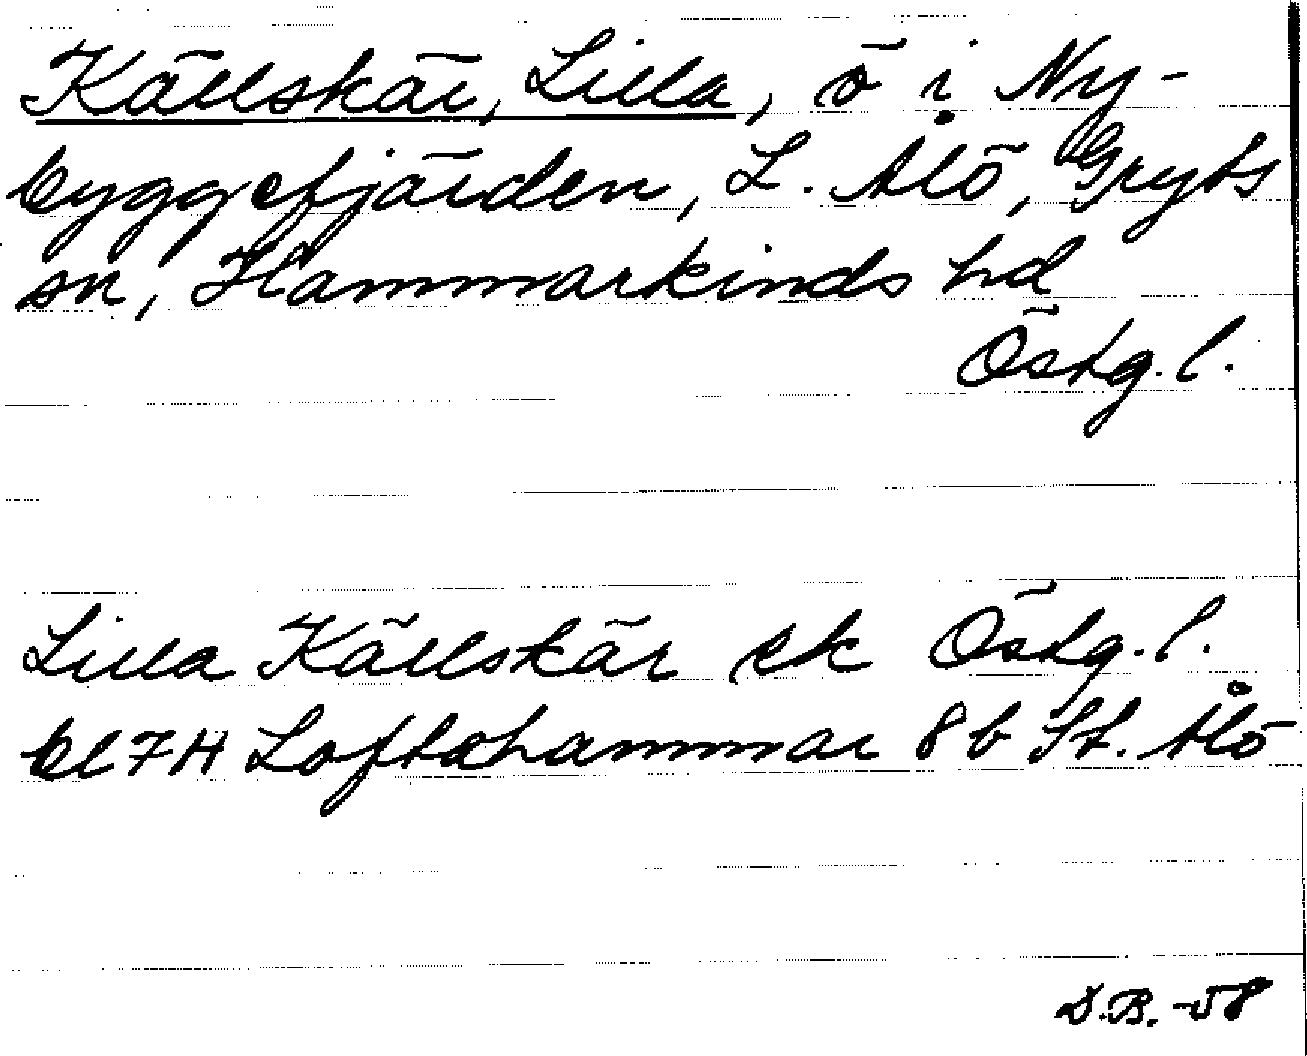 Källskär, Lilla, ö i Ny-
byggefjärden, L. Ålö, Gryts
sn, Hammarkinds hd
Östg. l.
Lilla Källskär ek Östg. l.
bl 7H Loftahammar 8b St. Ålö
D.B. -58